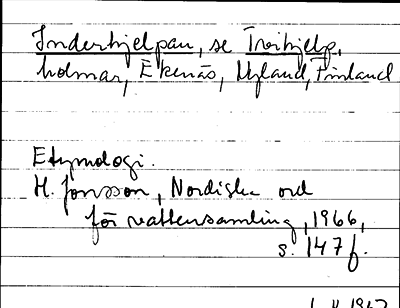 Inderhjelpan, se Troihjelp,
holmar, Ekenäs, Nyland, Finland
Etymologi.
H. Jonsson, Nordiska ord
för vattensamling, 1966,
s. 147 f.